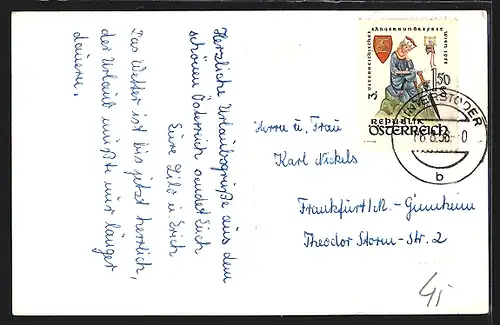 Herzliche Urlaubsgrüße aus dem
schönen Österreich sendet Euch
Eure Lilo u. Erich
Das Wetter ist bis jetzt herrlich,
der Urlaub müßte nur länger
dauern.
3. ÖSTERREICHISCHES SÄNGERBUNDESFEST WIEN 1958
1.50
S
REPUBLIK
ÖSTERREICH
HINTERSTODER
6.58-0
b
Herrn u. Frau
Karl Nickels
Frankfurt/M.-Ginnheim
Theodor Storm-Str. 2